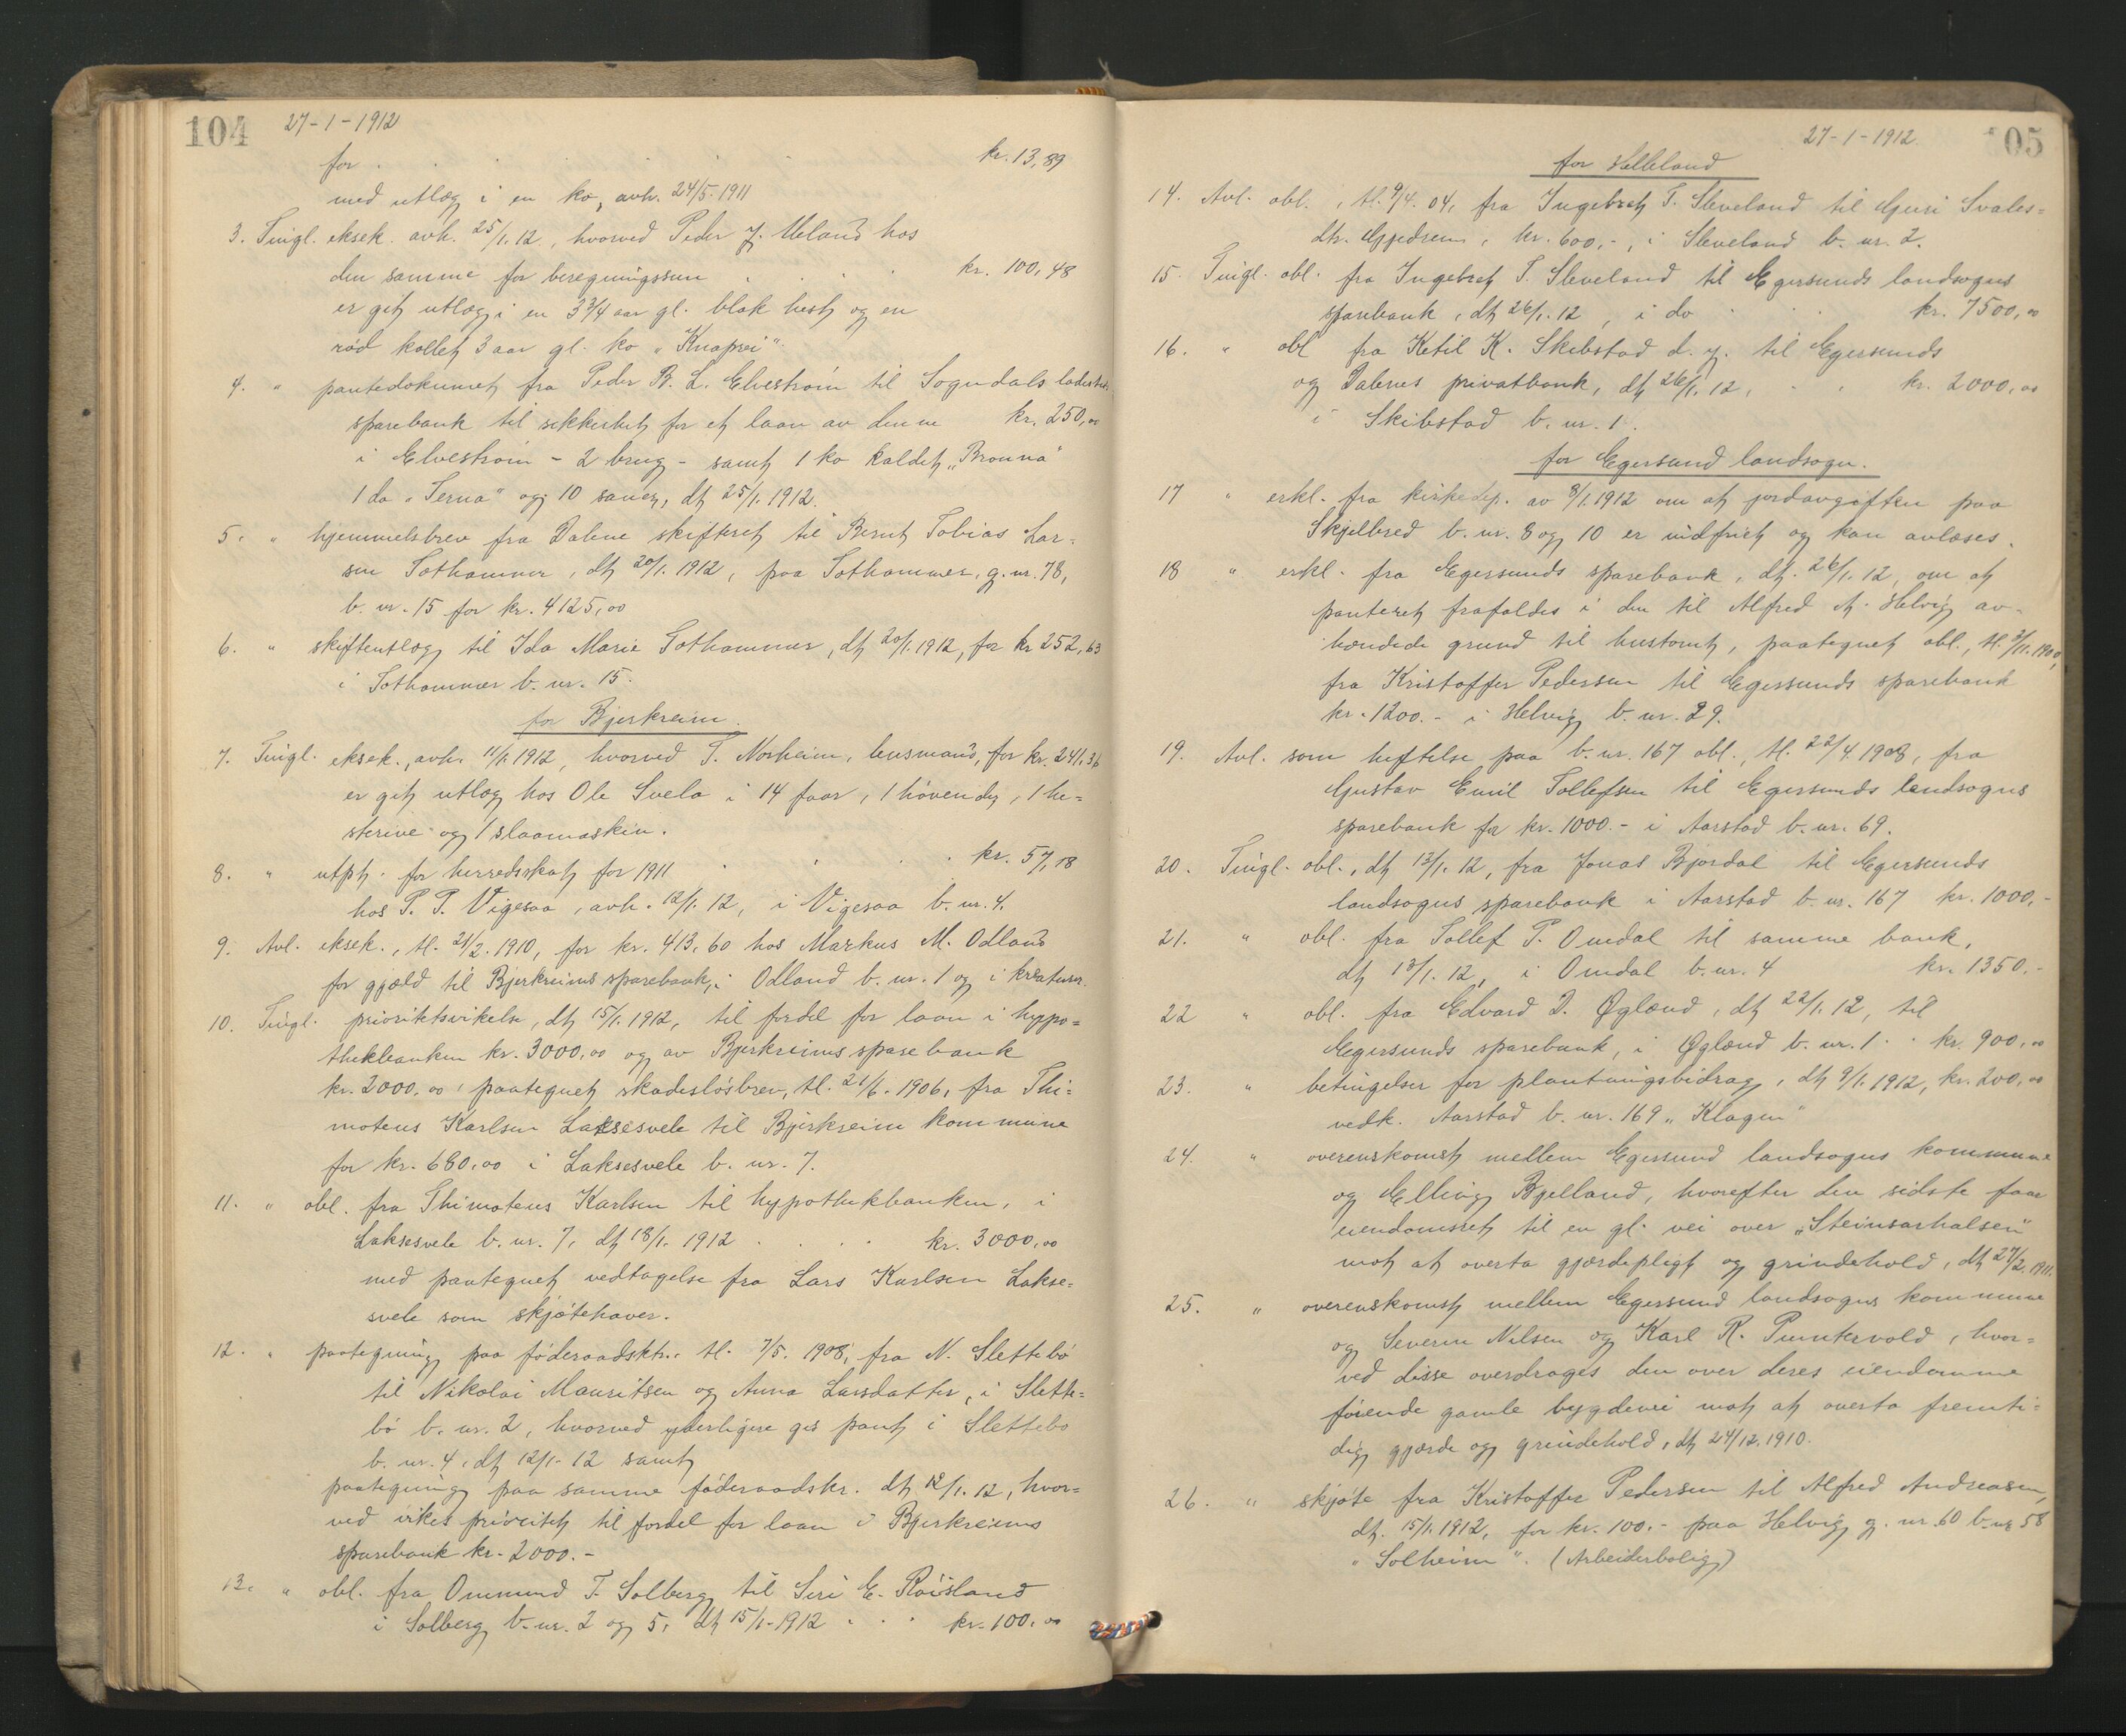 104 27-1-1912
for . . . . . kr. 13,89
med utlæg i en ko, avh. 24/5. 1911
3. Tingl. eksek. avh. 25/1. 12, hvorved Peder J. Meland hos
den samme for beregningssum . . . kr. 100,48
er git utlæg i en 3 3/4 aar gl. blak hest og en
rød kollet 3 aar gl. ko "Knaprei"
4. " pantedokument fra Peder B. L. Elvestrøm til Sogndals ladesteds
sparebank til sikkerhet for et laan av denne kr. 250,00
i Elvestrøm - 2 brug - samt 1 ko kaldet "Brouna"
1 do "Terna" og 10 sauer, dt 25/1. 1912.
5. " hjemmelsbrev fra Dalene skifteret til Bernt Tobias Lar-
sen Tothammer, dt 20/1. 1912, paa Tothammer, g. nr. 78,
b. nr. 15 for kr. 4125,00
6. " skifteutlæg til Ida Marie Tothammer, dt 20/1. 1912, for kr 252,63
i Tothammer b. nr. 15.
for Bjerkreim.
7. Tingl. eksek., avh. 11/1. 1912, hvorved T. Norheim, lensmand, for kr. 241,36
er git utlæg hos Ole Svela i 14 faar, 1 høvender, 1 he-
sterive og 1 slaamaskin.
8. " utpt. for herredsskat for 1911 . . . kr. 57,18
hos P. P. Vigesaa, avh. 12/1. 12, i Vigesaa b. nr. 4.
9. Avl. eksek., tl. 21/2. 1910, for kr. 413,60 hos Markus M. Odland
for gjæld til Bjerkreims sparebank, i Odland b. nr. 1 og i kreaturer.
10. Tingl. prioritetsvikelse, dt 15/1. 1912, til fordel for laan i hypo-
thekbanken kr. 3000,00 og av Bjerkreims sparebank
kr. 2000,00, paategnet skadesløsbrev, tl. 21/6. 1906, fra Thi-
moteus Karlsen Laksesvele til Bjerkreim kommune
for kr. 680,00 i Laksesvele b. nr. 7.
11. " obl. fra Thimoteus Karlsen til hypothekbanken, i
Laksesvele b. nr. 7, dt 18/1. 1912 . . . . kr. 3000,00
med paategnet vedtagelse fra Lars Karlsen Lakse-
svele som skjøtehaver.
12. " paategning paa føderaadsktr. tl. 7/5. 1908, fra N. Slettebø
til Nikolai Mauritsen og Anna Larsdatter, i Slette-
bø b. nr. 2, hvorved yderligere gis pant i Slettebø
b. nr. 4, dt 12/1. 12 samt
paategning paa samme føderaadskr. dt 12/1. 12, hvor-
ved vikes prioritet til fordel for laan i Bjerkreims
sparebank kr. 2000.-
13. " obl. fra Ommund T. Solberg til Siri E. Røisland
i Solberg b. nr. 2 og 5, dt 15/1-1912 . . . kr. 100,00
27-1-1912 105
for Helleland
14. Avl. obl., tl. 9/4. 04, fra Ingebret T. Sleveland til Guri Svales-
dtr. Gjedrem, kr. 600,-, i Sleveland b. nr. 2.
15. Tingl. obl. fra Ingebret T. Sleveland til Egersunds landsogns
sparebank, dt 26/1. 12, i do . . . kr. 7500,00
16. " obl fra Ketil K. Skibstad d. y. til Egersunds
og Dalenes privatbank, dt 26/1. 12, . . kr. 2000,00
i Skibstad b. nr. 1.
for Egersund landsogn.
17 " erkl. fra kirkedep. av 8/1. 1912 om at jordavgiften paa
Skjelbred b. nr. 8 og 10 er indfriet og kan avlæses.
18 " erkl. fra Egersunds sparebank, dt. 26/1. 12, om at
panteret frafaldes i den til Alfred A. Helvig av-
hændede grund til hustomt, paategnet obl., tl. 9/11. 1900,
fra Kristoffer Pedersen til Egersunds sparebank
kr. 1200.- i Helvig b. nr. 29.
19. Avl. som heftelse paa b. nr. 167 obl., tl. 22/4. 1908, fra
Gustav Emil Tollefsen til Egersunds landsogns
sparebank for kr. 1000.- i Aarstad b. nr. 69.
20. Tingl. obl., dt 13/1. 12, fra Jonas Bjordal til Egersunds
landsogns sparebank i Aarstad b. nr. 167 kr. 1000,-
21. " obl. fra Tollef P. Omdal til samme bank,
dt 13/1. 12, i Omdal b. nr. 4 kr. 1350.-
22 " obl. fra Edvard D. Øglænd, dt 22/1. 12, til
Egersunds sparebank, i Øglænd b. nr. 1 . . kr. 900,00
23. " betingelser for plantningsbidrag, dt 9/1. 1912, kr. 200,00
vedk. Aarstad b. nr. 169 "Klagen"
24. " overenskomst mellem Egersund landsogns kommune
og Elling Bjelland, hvorefter den sidste faar
eiendomsret til en gl. vei over "Steinsarhalsen"
mot at overta gjærdepligt og grindehold, dt 27/2. 1911.
25. " overenskomst mellem Egersund landsogns kommune
og Severin Nilsen og Karl R. Puntervold, hvor-
ved disse overdrages den over deres eiendomme
førende gamle bygdevei mot at overta fremti-
dig gjærde og grindehold, dt 24/12. 1910.
26. " skjøte fra Kristoffer Pedersen til Alfred Andreasen,
dt. 15/1. 1912, for kr. 100.- paa Helvig g. nr. 60 b. nr 58
"Solheim". (Arbeiderbolig)